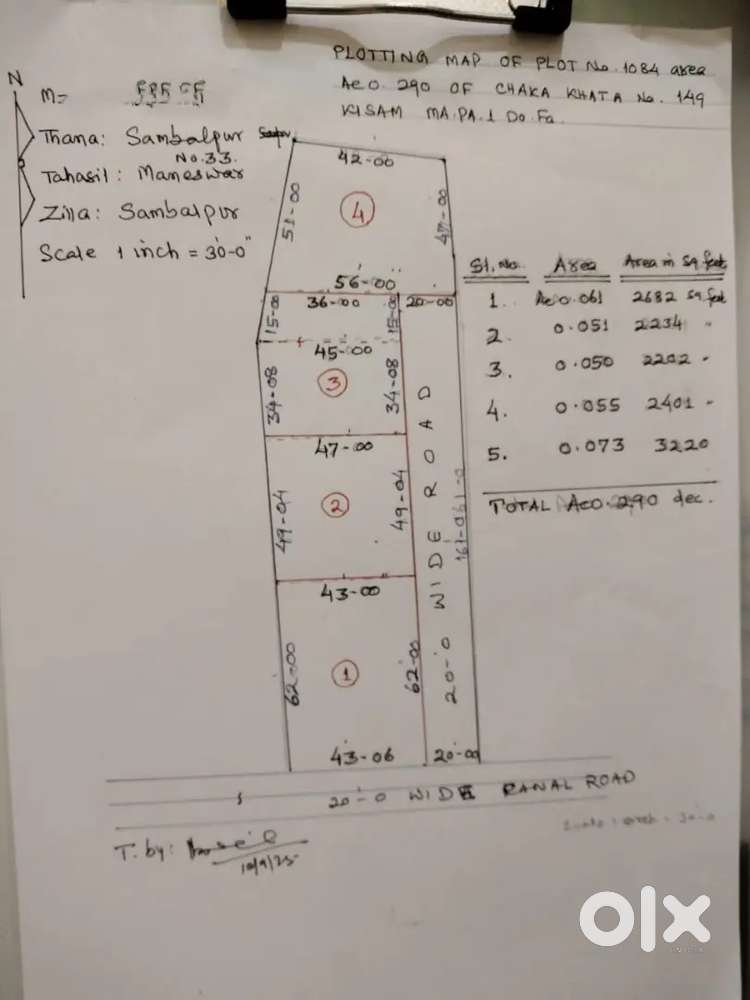 PLOTTING MAP OF PLOT No. 1084 area
Ac0.290 OF CHAKA KHATA No. 149
KISAM MA.PA.1 Do.Fa.
N
M=
Thana: Sambalpur Sadar
No.33.
Tahasil: Maneswar
Zilla: Sambalpur
Scale 1 inch = 30'-0"
42-00
51-00
4
47-00
56-00
36-00
20-00
15-00
15-00
45-00
3
34-08
34-08
47-00
2
49-04
49-04
43-00
1
62-00
62-00
43-06
20-00
20-0 WIDE ROAD
161-0
20'-0 WIDE CANAL ROAD
Sl. No. Area Area in Sq. feet
1. Ac0.061 2682 Sq. feet
2. 0.051 2234 "
3. 0.050 2202 "
4. 0.055 2401 "
5. 0.073 3220
TOTAL Ac0.290 dec.
T. by:
olx